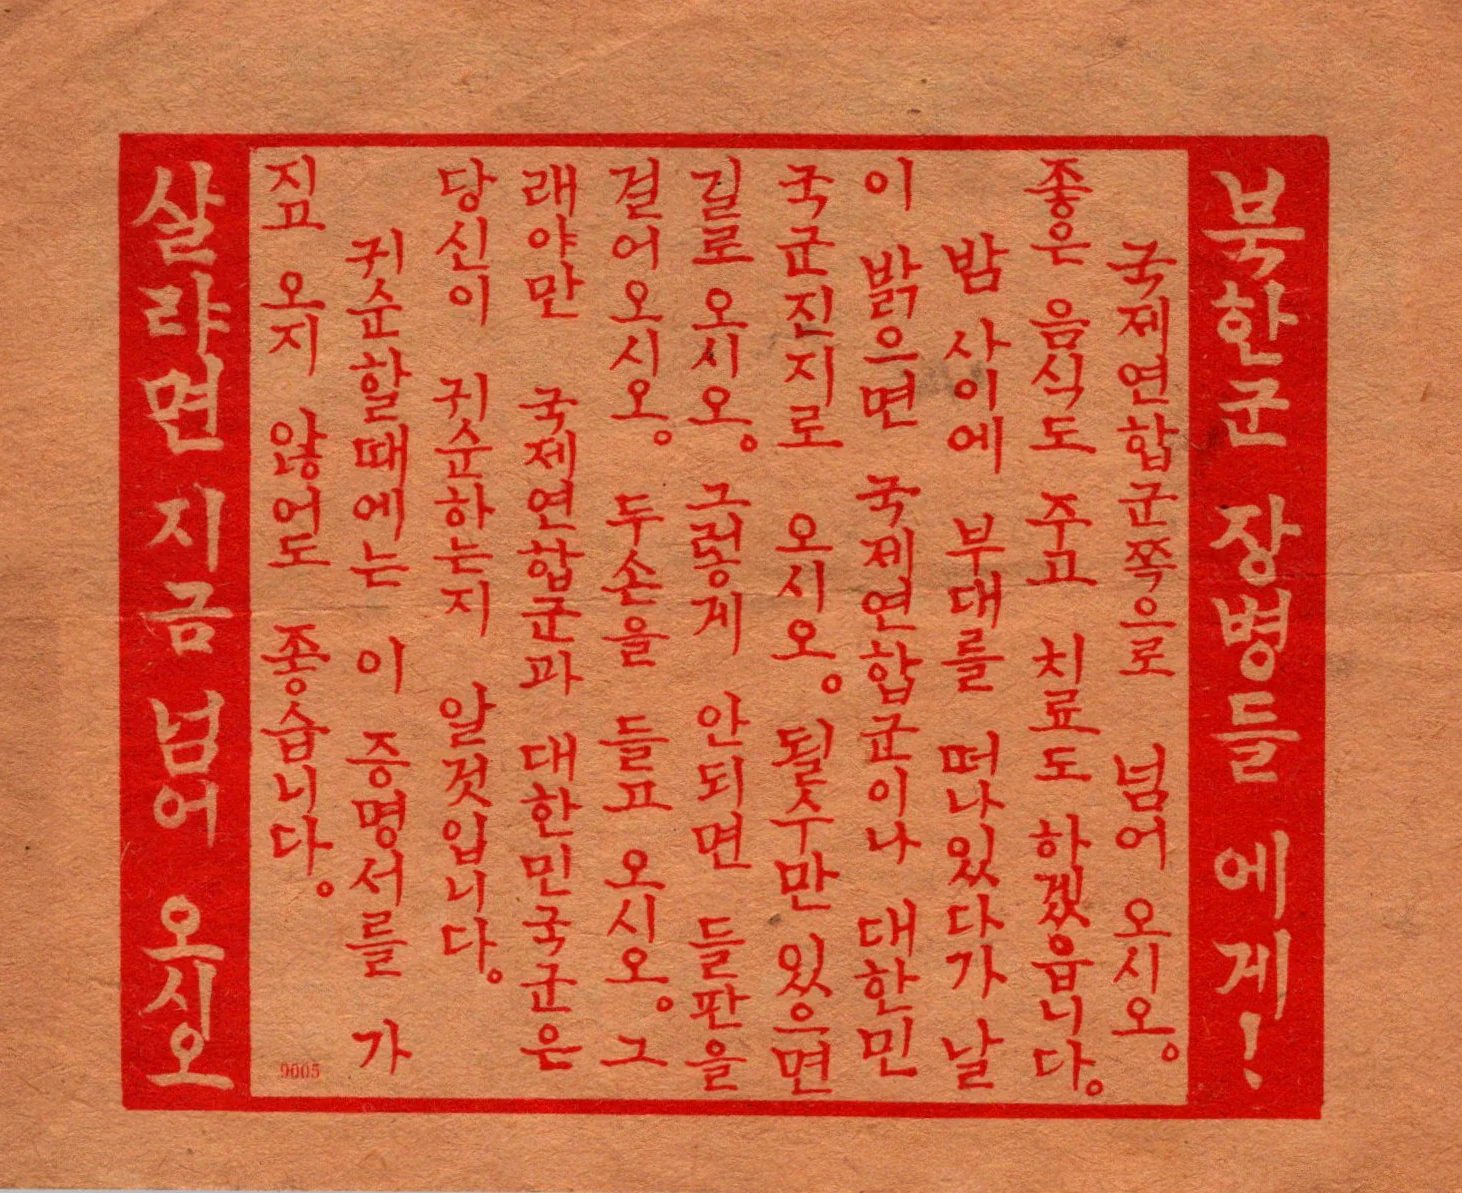 북한군 장병들에게!
국제연합군쪽으로 넘어 오시오。
좋은 음식도 주고 치료도 하겠읍니다。
밤 사이에 부대를 떠나있다가 날
이 밝으면 국제연합군이나 대한민
국군진지로 오시오。 될수만 있으면
길로 오시오。 그렇게 안되면 들판을
걸어오시오。 두손을 들고 오시오。 그
래야만 국제연합군과 대한민국군은
당신이 귀순하는지 알것입니다。
귓순할때에는 이 증명서를 가
짖고 오지 않어도 좋습니다。
9005
살랴면 지금 넘어 오시오